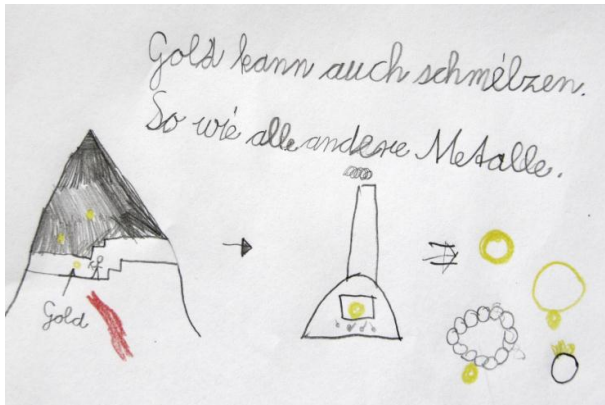 Gold kann auch schmelzen.
So wie alle andere Metalle.
Gold